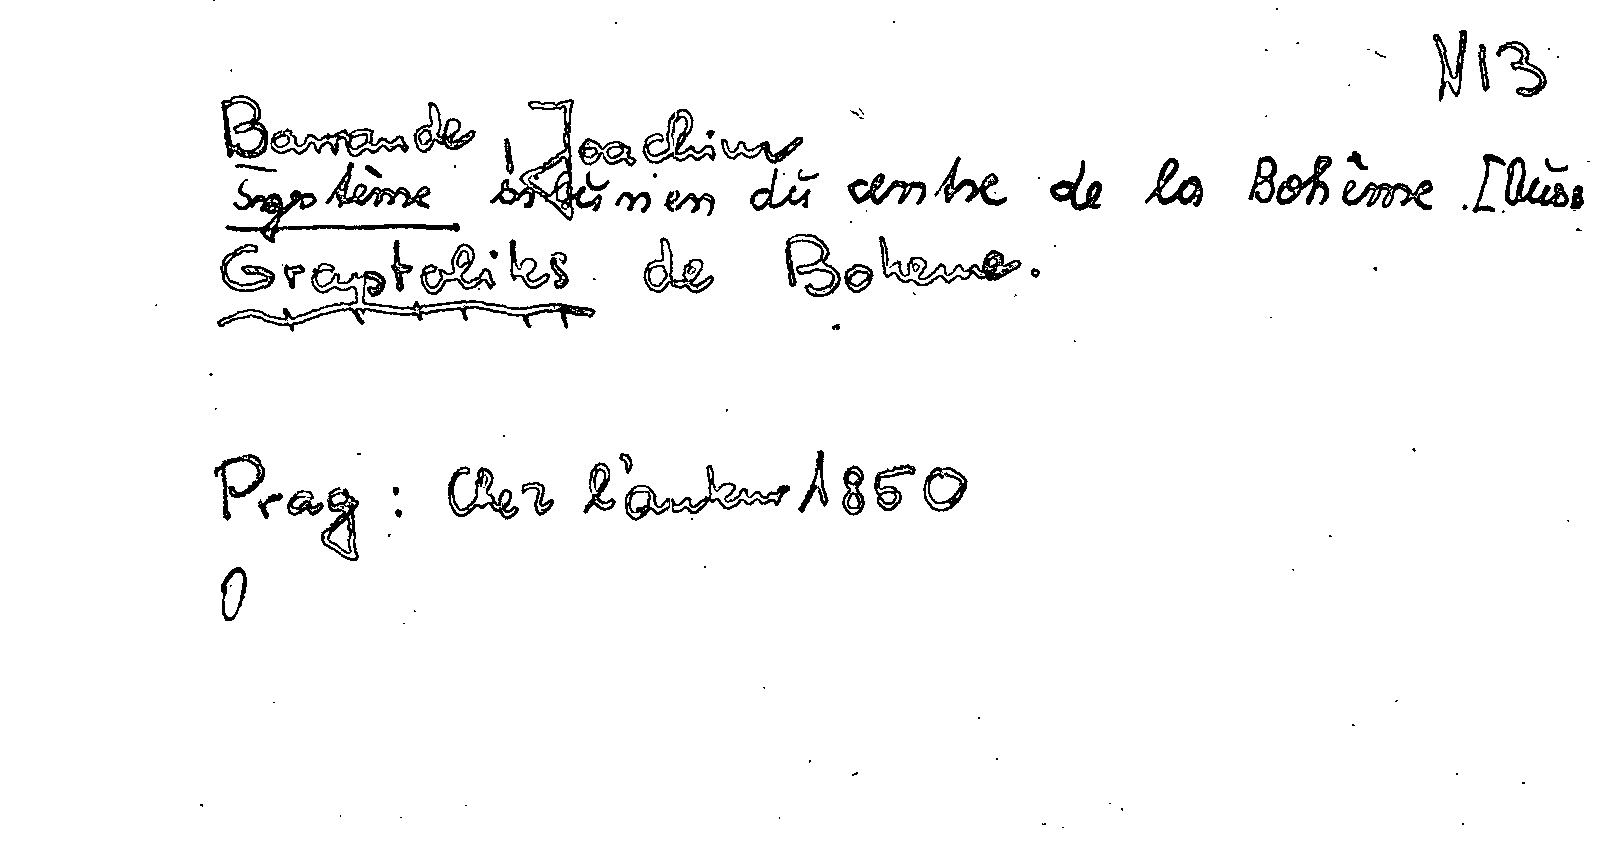 N13
Barrande, Joachim
Système silurien du centre de la Bohême.
Graptolites de Boheme.
Prag: Chez l'auteur 1850